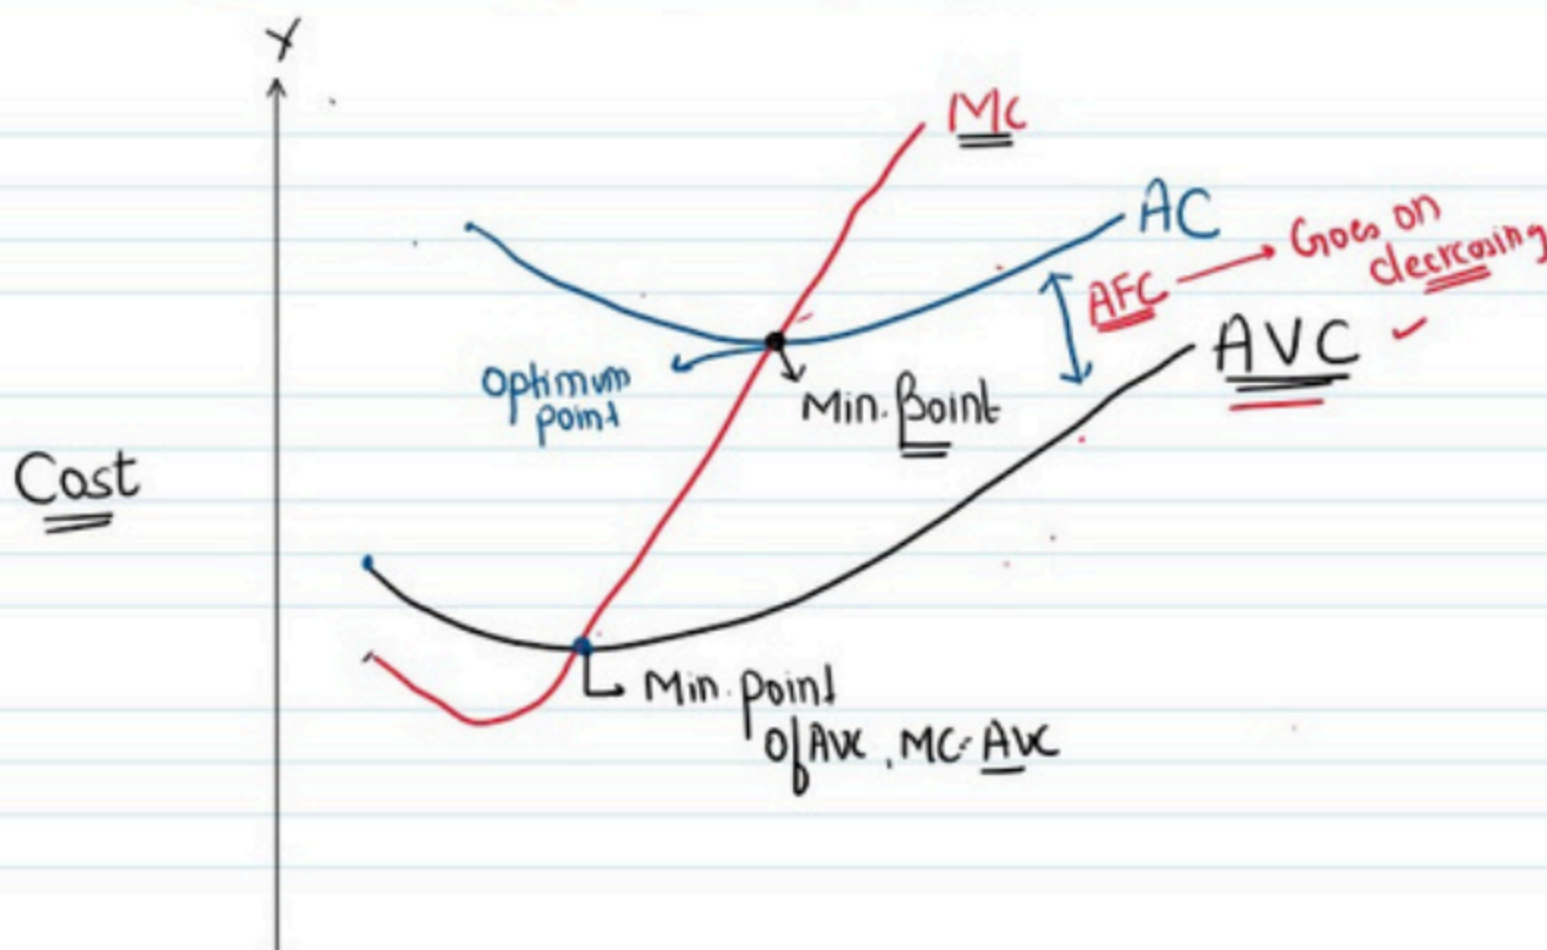 Y
MC
AC
AFC → Goes on
decreasing
AVC ✓
Optimum
point
Min. Point
Cost
Min. point
Of AVC, MC=AVC